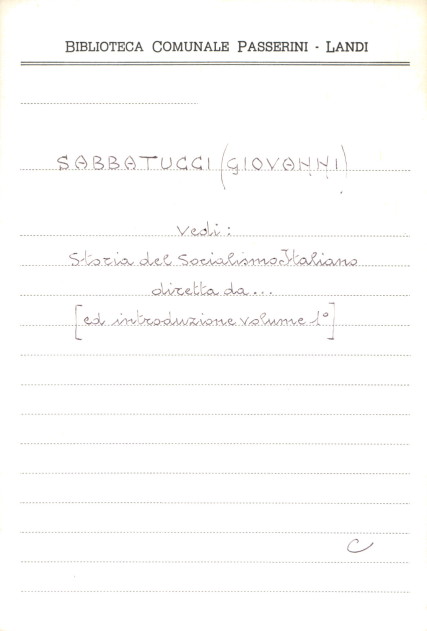 BIBLIOTECA COMUNALE PASSERINI - LANDI
SABBATUCCI (GIOVANNI)
Vedi:
Storia del Socialismo Italiano
diretta da...
[ed introduzione volume 1°]
C